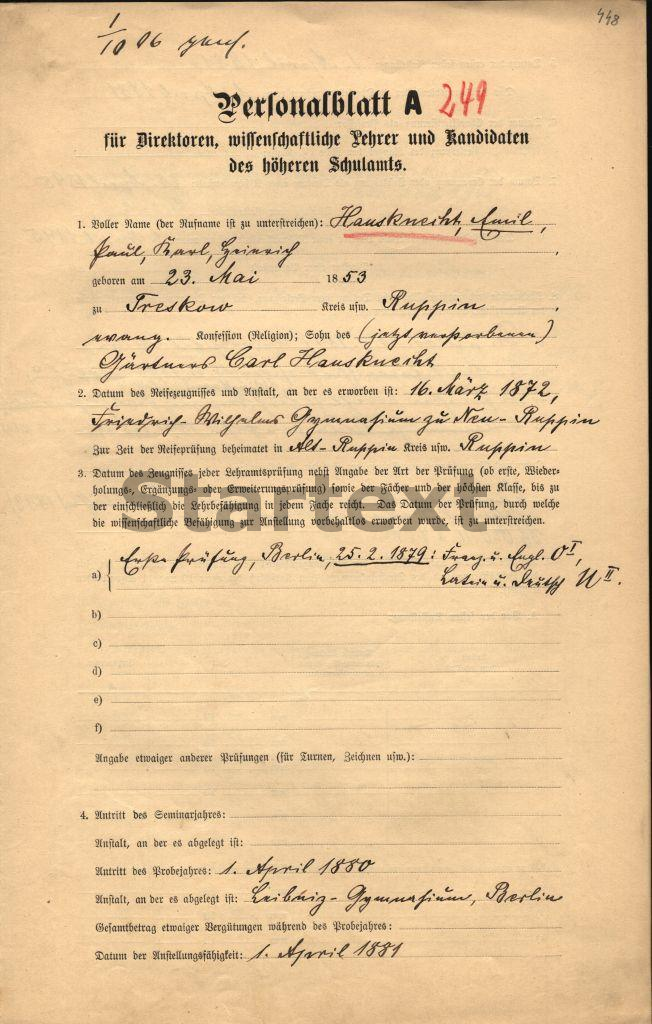 1/10 06
448
Personalblatt A 249
für Direktoren, wissenschaftliche Lehrer und Kandidaten
des höheren Schulamts.
1. Voller Name (der Rufname ist zu unterstreichen): Hausknecht, Emil,
Paul, Karl, Heinrich
geboren am 23. Mai 1853
zu Treskow Kreis usw. Ruppin
evang. Konfession (Religion); Sohn des (jetzt verstorbenen)
Gärtners Carl Hausknecht
2. Datum des Reifezeugnisses und Anstalt, an der es erworben ist: 16. März 1872,
Friedrich-Wilhelms Gymnasium zu Neu-Ruppin
Zur Zeit der Reifeprüfung beheimatet in Alt-Ruppin Kreis usw. Ruppin
3. Datum des Zeugnisses jeder Lehramtsprüfung nebst Angabe der Art der Prüfung (ob erste, Wieder-
holungs-, Ergänzungs- oder Erweiterungsprüfung) sowie der Fächer und der höchsten Klasse, bis zu
der einschließlich die Lehrbefähigung in jedem Fache reicht. Das Datum der Prüfung, durch welche
die wissenschaftliche Befähigung zur Anstellung vorbehaltlos erworben wurde, ist zu unterstreichen.
Startext
a) Erste Prüfung, Berlin, 25. 2. 1879: Franz. u. Engl. O I,
Latein u. Deutsch U II.
b)
c)
d)
e)
f)
Angabe etwaiger anderer Prüfungen (für Turnen, Zeichnen usw.):
4. Antritt des Seminarjahres:
Anstalt, an der es abgelegt ist:
Antritt des Probejahres: 1. April 1880
Anstalt, an der es abgelegt ist: Leibniz-Gymnasium, Berlin
Gesamtbetrag etwaiger Vergütungen während des Probejahres:
Datum der Anstellungsfähigkeit: 1. April 1881